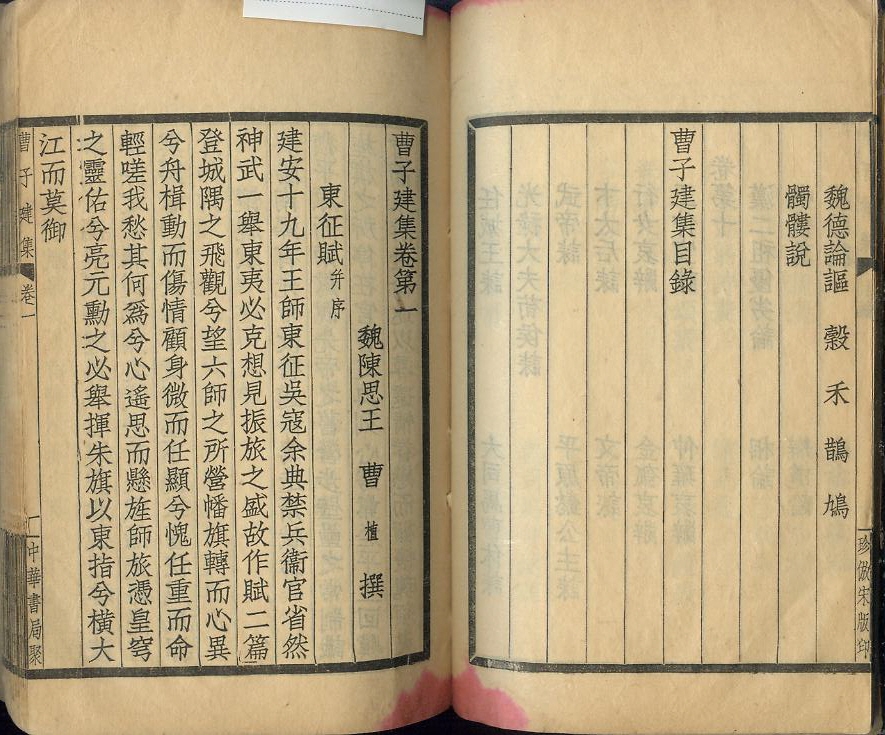 魏德論謳　穀　禾　鵲　鳩
髑髏說
曹子建集目錄
珍倣宋版印
曹子建集卷第一
魏陳思王　曹　植　撰
東征賦并序
建安十九年王師東征吳寇余典禁兵衞官省然
神武一舉東夷必克想見振旅之盛故作賦二篇
登城隅之飛觀兮望六師之所營幡旗轉而心異
兮舟楫動而傷情顧身微而任顯兮愧任重而命
輕嗟我愁其何爲兮心遙思而懸旌師旅憑皇穹
之靈佑兮亮元勳之必舉揮朱旗以東指兮橫大
江而莫御
曹子建集　卷一
中華書局聚